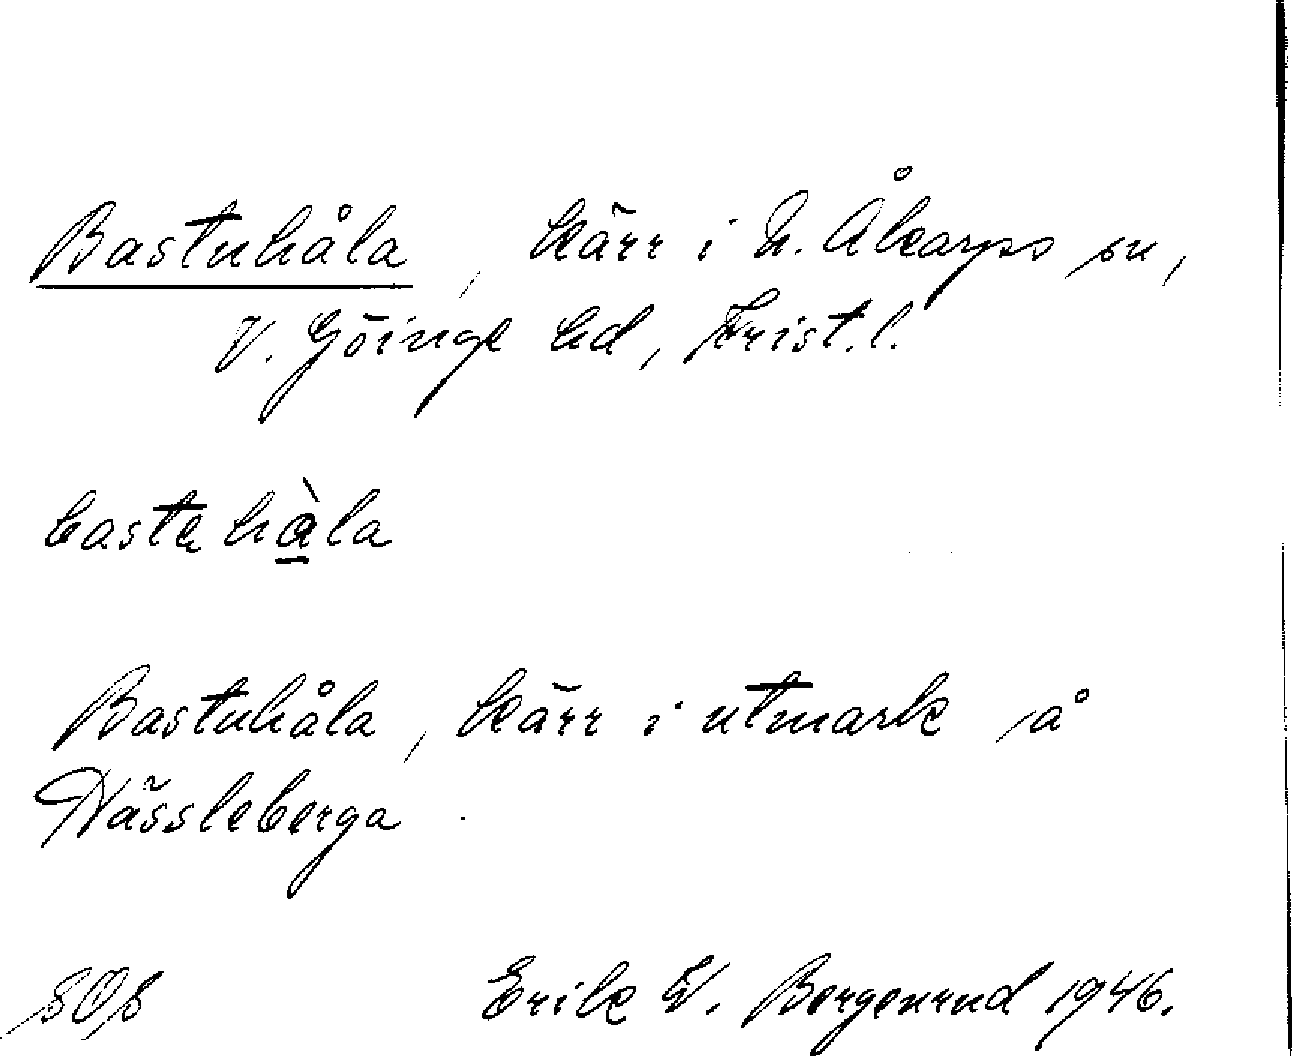 Bastuhåla, kärr i N. Åkarps sn,
V. Göinge hd, Krist. l.
bastahàla
Bastuhåla, kärr i utmark på
Nässleberga.
SOS Erik W. Bergenrud 1946.